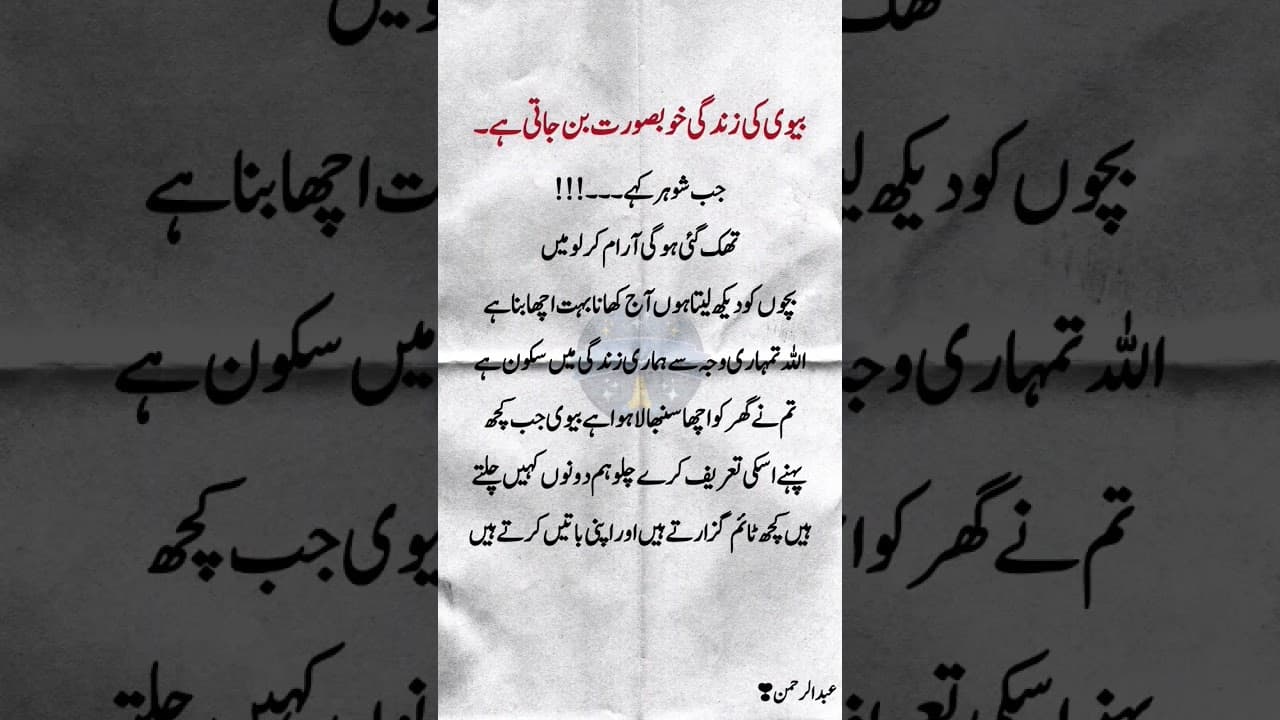 بیوی کی زندگی خوبصورت بن جاتی ہے۔
جب شوہر کہے۔۔۔!!!
تھک گئی ہو گی آرام کر لو میں
بچوں کو دیکھ لیتا ہوں آج کھانا بہت اچھا بنا ہے
اللہ تمہاری وجہ سے ہماری زندگی میں سکون ہے
تم نے گھر کو اچھا سنبھالا ہوا ہے بیوی جب کچھ
پہنے اسکی تعریف کرے چلو ہم دونوں کہیں چلتے
ہیں کچھ ٹائم گزارتے ہیں اور اپنی باتیں کرتے ہیں
عبدالرحمن❣